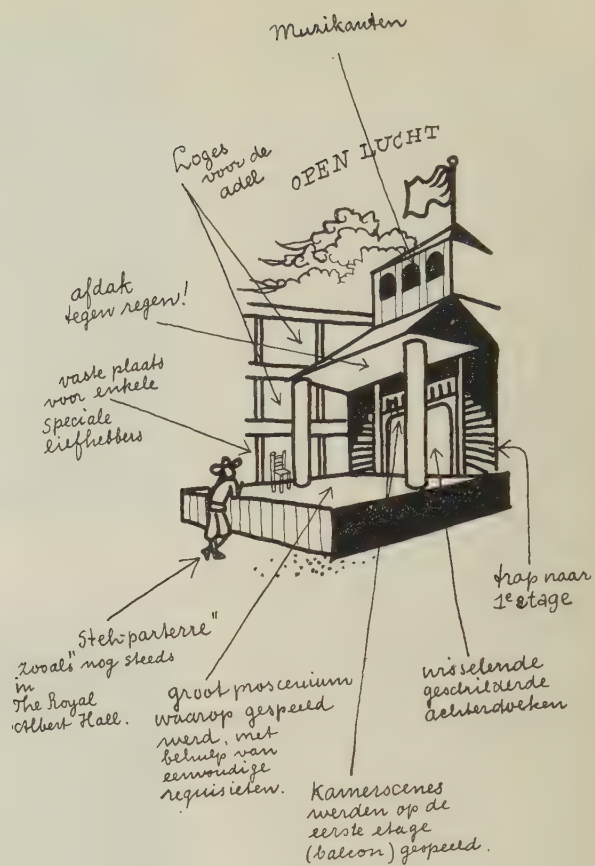 Muzikanten
OPEN LUCHT
Loges
voor de
adel
afdak
tegen regen!
vaste plaats
voor enkele
speciale
liefhebbers
trap naar
1e etage
"Steh-parterre"
zooals nog steeds
in
The Royal
Albert Hall.
groot proscenium
waarop gespeeld
werd, met
behulp van
eenvoudige
requisieten.
Kamerscenes
werden op de
eerste etage
(balcon) gespeeld.
wisselende
geschilderde
achterdoeken